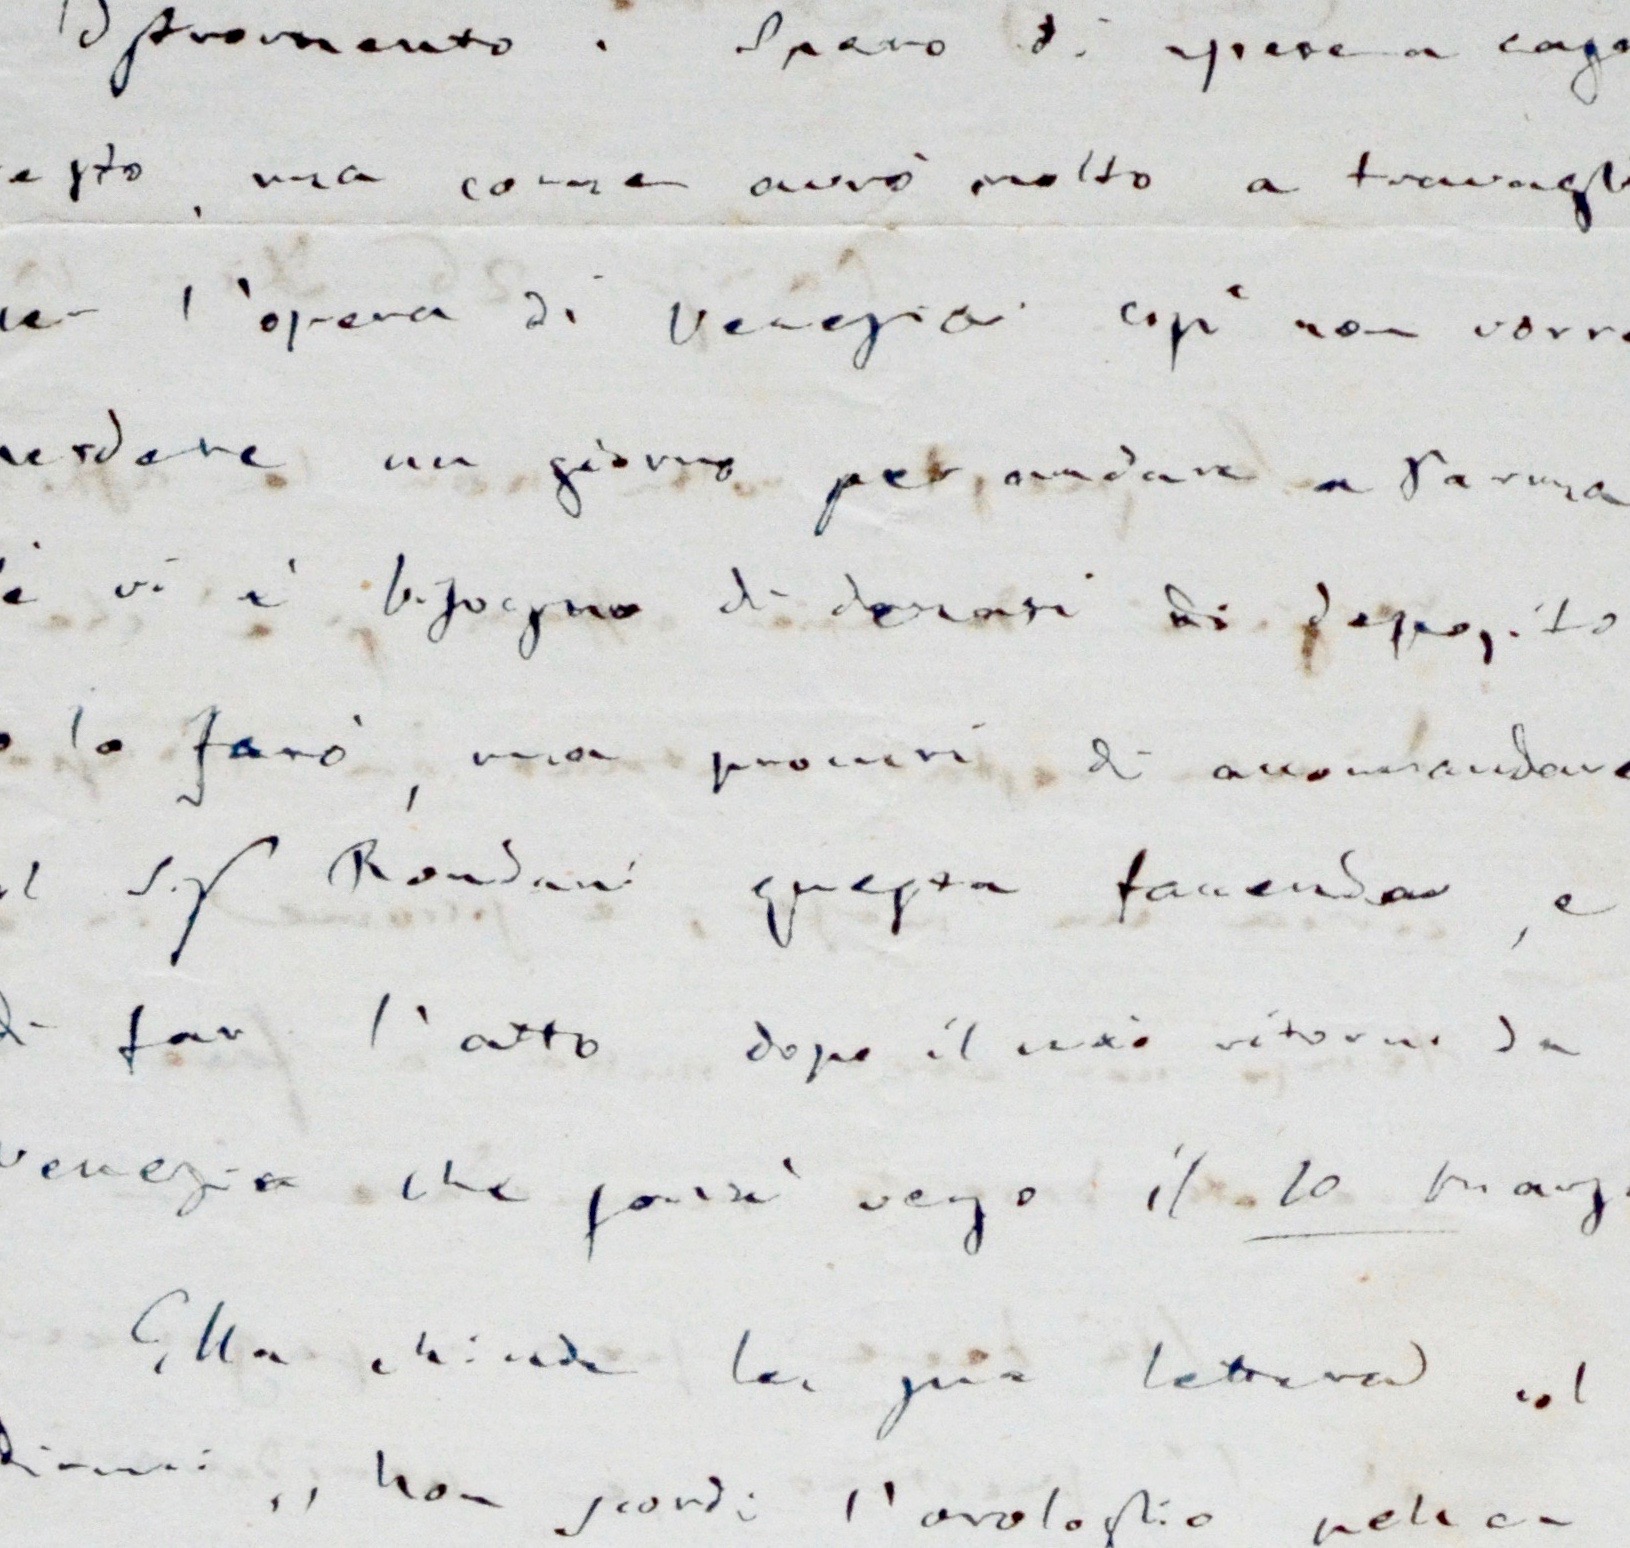 Istromento. Spero di essere a casa
esto, ma come avrò molto a travagli
per l'opera di Venezia così non vorre
perdere un giorno per andare a Parma
è vi è bisogno di denari di deposito
o lo farò, ma procuri di accomandare
al Sig Rondani questa faccenda, e
di far l'atto dopo il mio ritorno da
Venezia che sarà verso il 10 marzo
Ella chiude la sua lettera col
dirmi ,, non scordi l'orologio